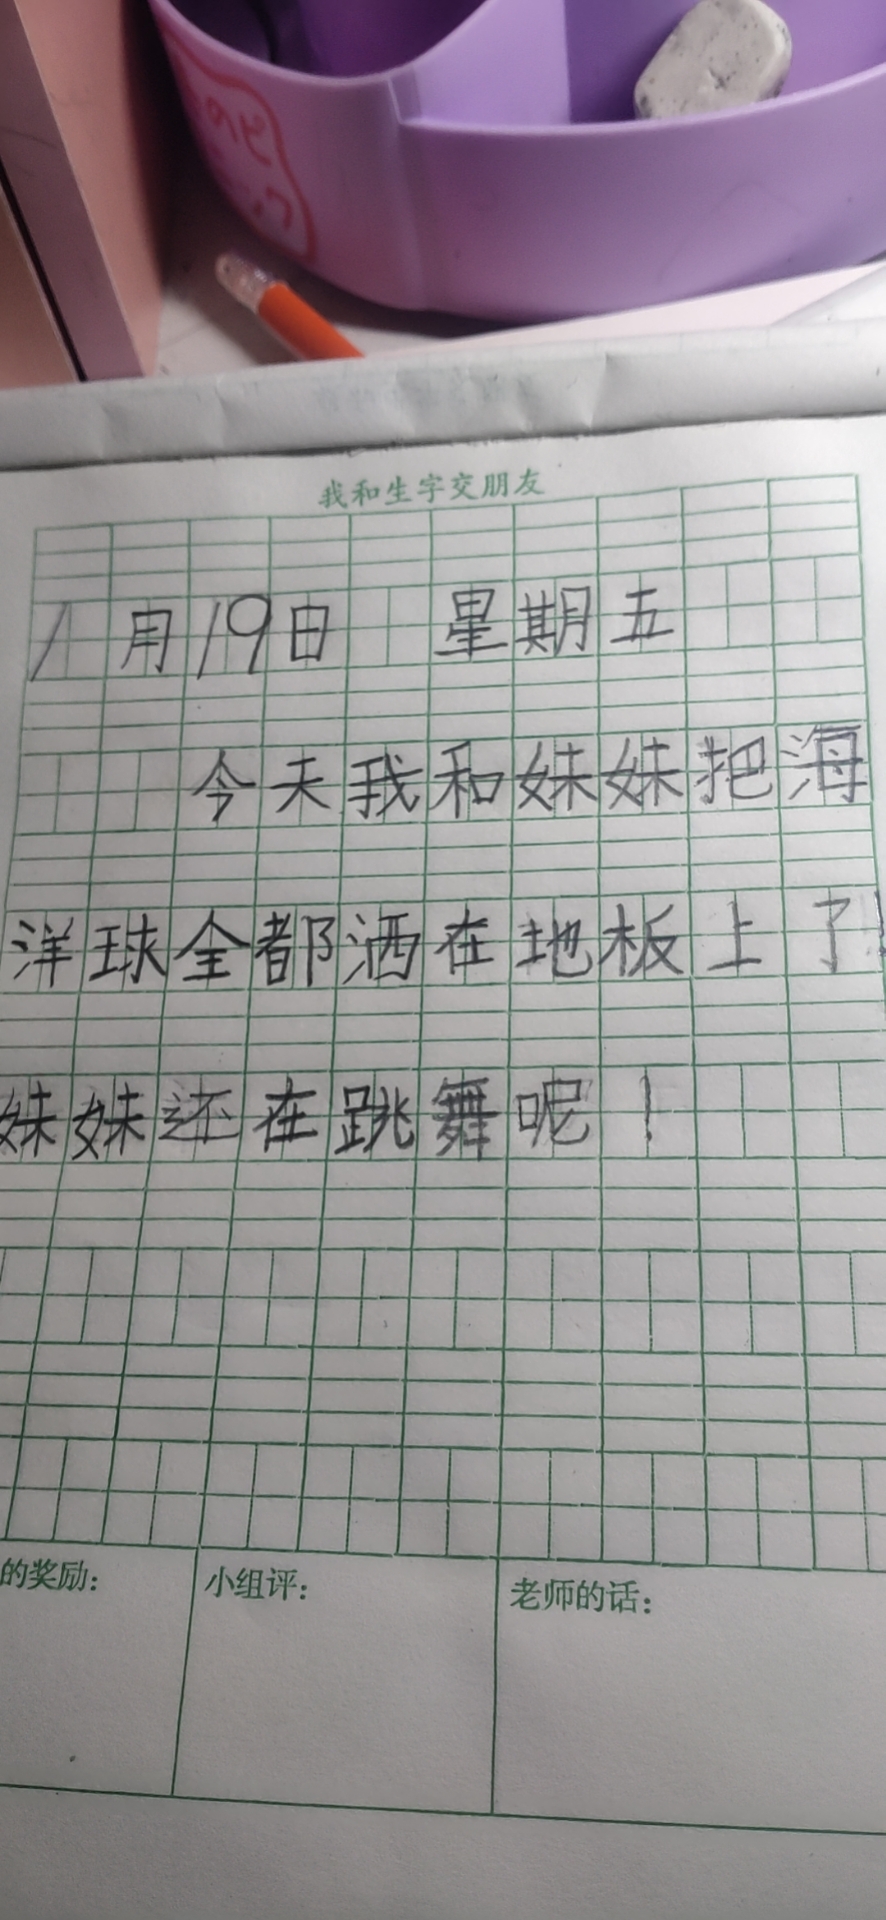 のピ
ック
我和生字交朋友
1月19日 星期五
今天我和妹妹把海
洋球全都洒在地板上了!
妹妹还在跳舞呢!
的奖励:
小组评:
老师的话: